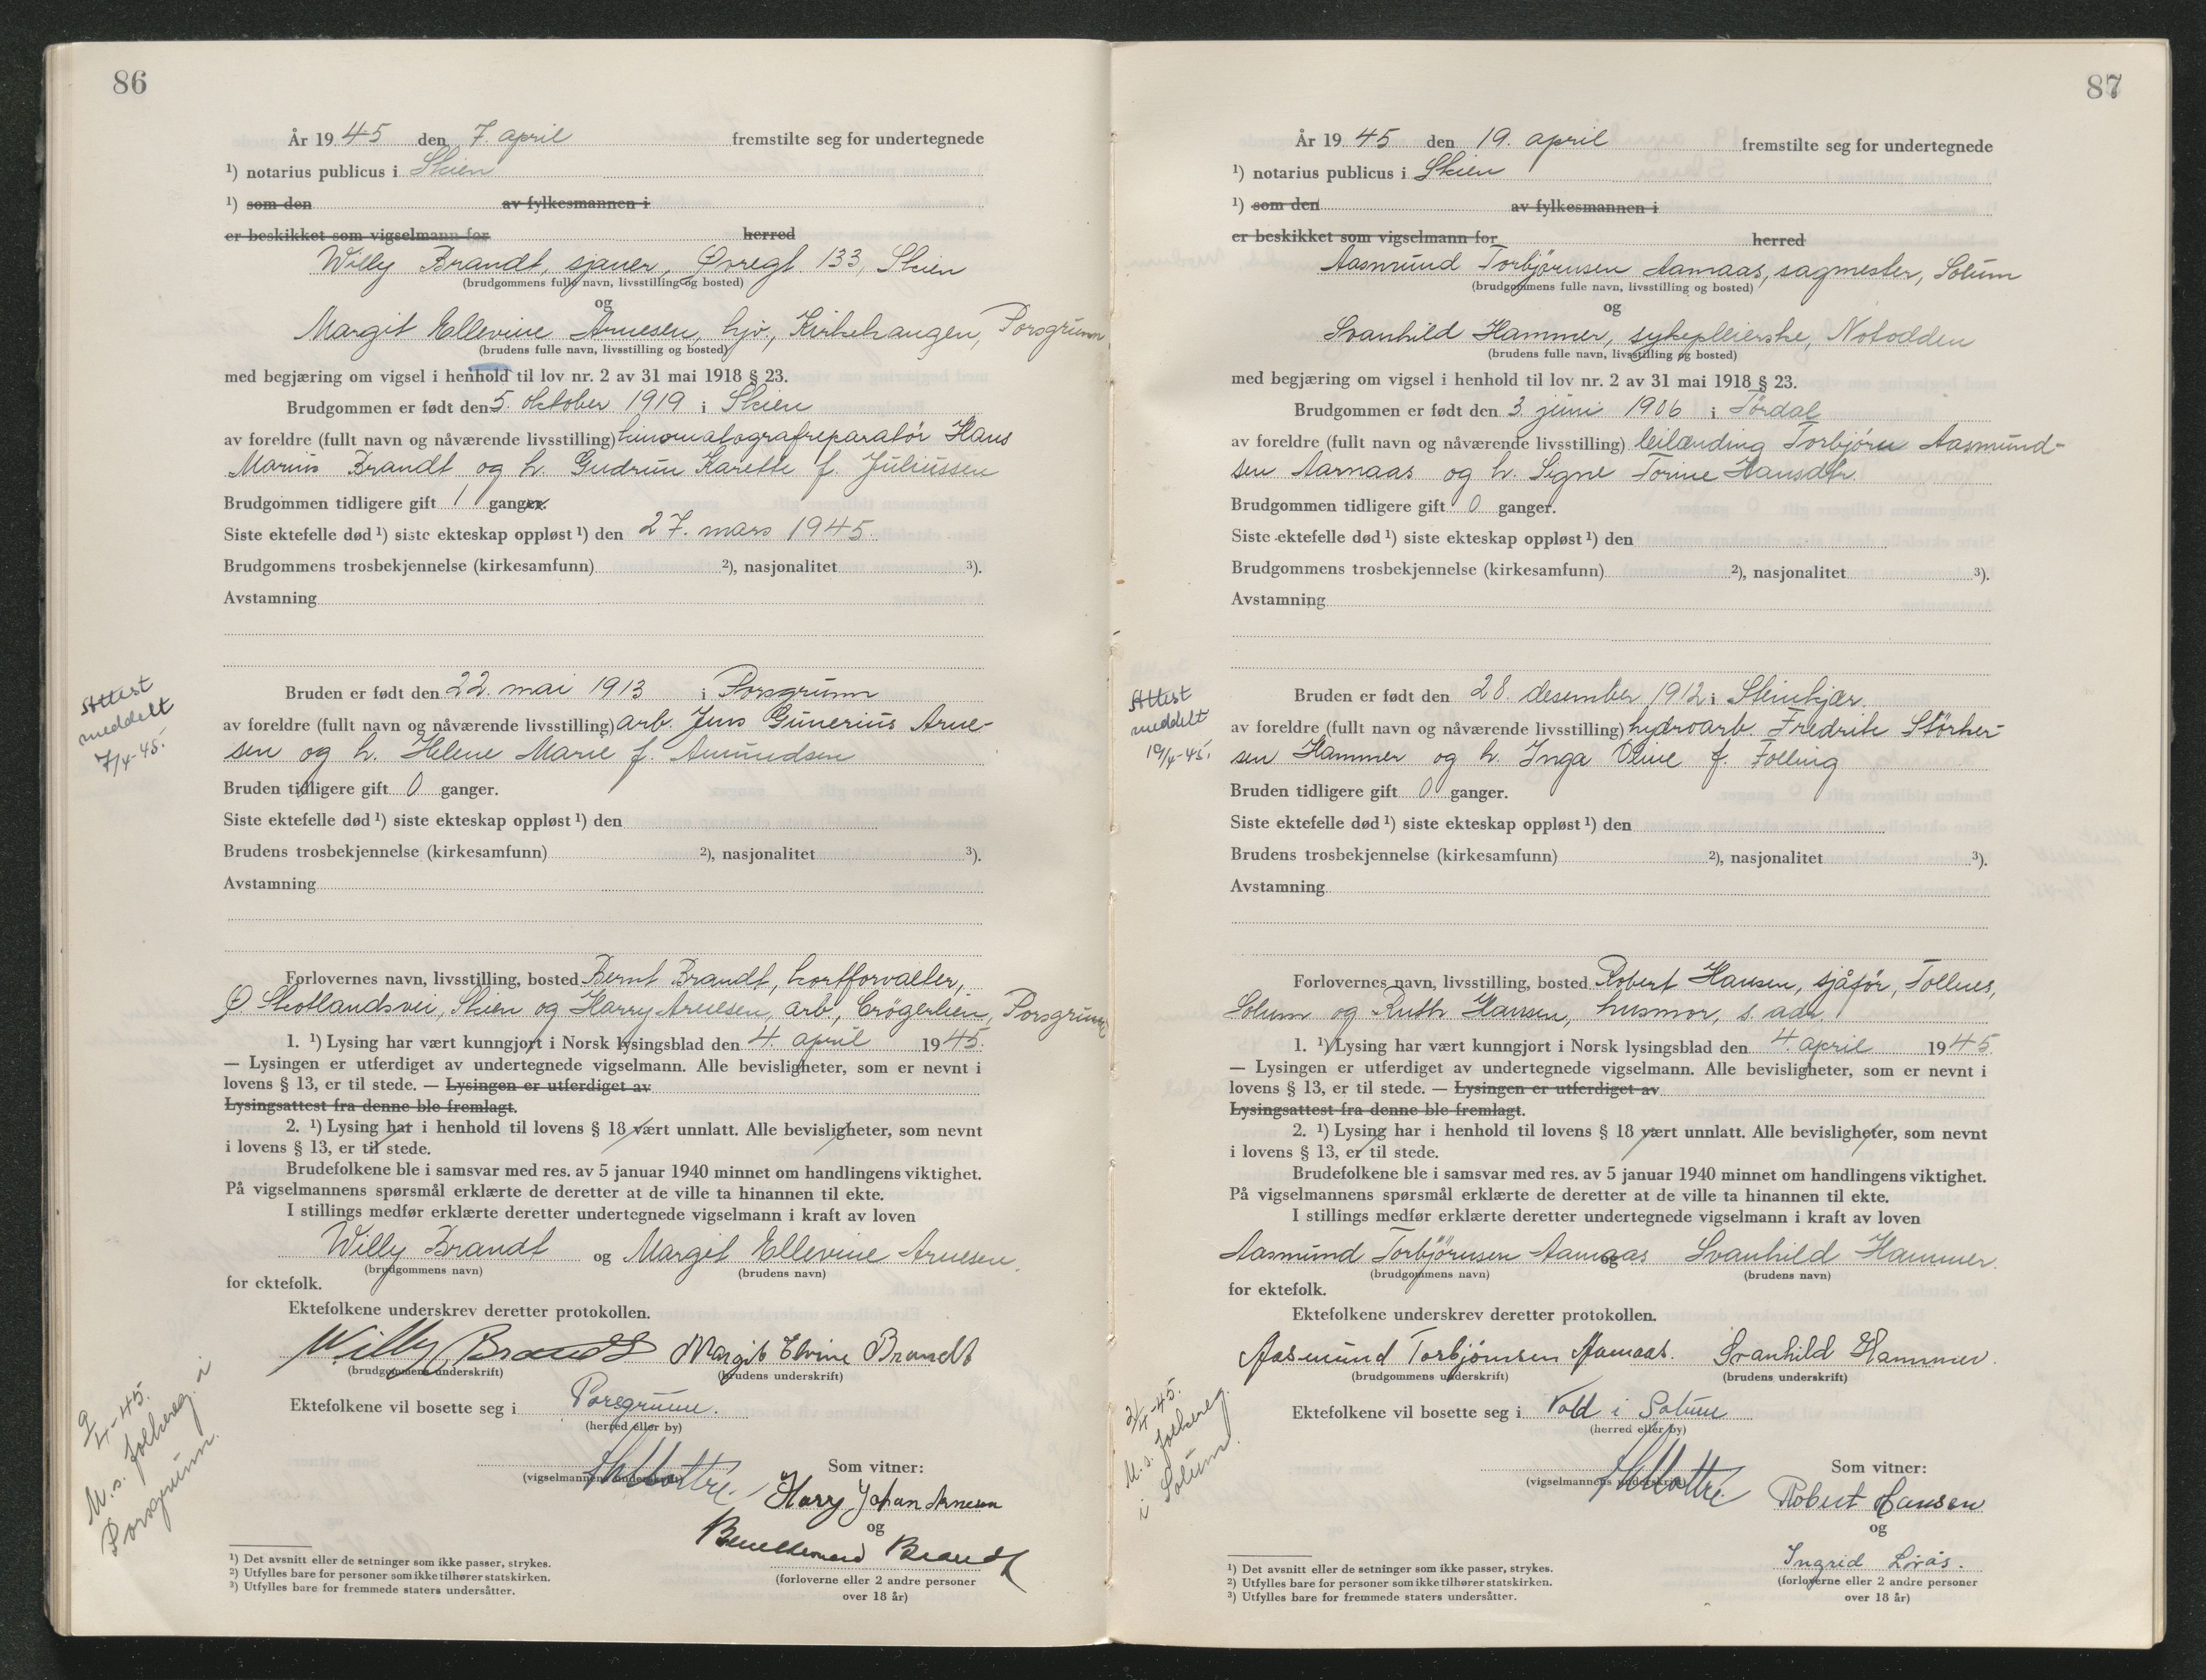 86
År 19 45 den 7. april fremstilte seg for undertegnede
¹) notarius publicus i Skien
¹) som den av fylkesmannen i
er beskikket som vigselmann for herred
Willy Brandt, sjauer, Øvregt. 133, Skien
(brudgommens fulle navn, livsstilling og bosted)
og
Margit Ellevine Arnesen, hjv., Kirkehaugen, Porsgrunn
(brudens fulle navn, livsstilling og bosted)
med begjæring om vigsel i henhold til lov nr. 2 av 31 mai 1918 § 23.
Brudgommen er født den 5. oktober 1919 i Skien
av foreldre (fullt navn og nåværende livsstilling) kinomatografreparatör Hans
Marius Brandt og h. Gudrun Karette f. Juliussen
Brudgommen tidligere gift 1 ganger.
Siste ektefelle død ¹) siste ekteskap oppløst ¹) den 27. mars 1945.
Brudgommens trosbekjennelse (kirkesamfunn) ²), nasjonalitet ³).
Avstamning
Attest
meddelt
7/4-45.
Bruden er født den 22. mai 1913 i Porsgrunn
av foreldre (fullt navn og nåværende livsstilling) arb. Jens Gunerius Arne-
sen og h. Helene Marie f. Amundsen
Bruden tidligere gift 0 ganger.
Siste ektefelle død ¹) siste ekteskap oppløst ¹) den
Brudens trosbekjennelse (kirkesamfunn) ²), nasjonalitet ³).
Avstamning
Forlovernes navn, livsstilling, bosted Bernt Brandt, kortforvalter,
Ø. Skotlandsvei, Skien og Harry Arnesen, arb, Crögerlien, Porsgrunn
1. ¹) Lysing har vært kunngjort i Norsk lysingsblad den 4. april 19 45.
— Lysingen er utferdiget av undertegnede vigselmann. Alle bevisligheter, som er nevnt i
lovens § 13, er til stede. — Lysingen er utferdiget av
Lysingsattest fra denne ble fremlagt.
2. ¹) Lysing har i henhold til lovens § 18 vært unnlatt. Alle bevisligheter, som nevnt
i lovens § 13, er til stede.
Brudefolkene ble i samsvar med res. av 5 januar 1940 minnet om handlingens viktighet.
På vigselmannens spørsmål erklærte de deretter at de ville ta hinannen til ekte.
I stillings medfør erklærte deretter undertegnede vigselmann i kraft av loven
Willy Brandt og Margit Ellevine Arnesen.
(brudgommens navn) (brudens navn)
for ektefolk.
Ektefolkene underskrev deretter protokollen.
Willy Brandt Margit Elvine Brandt
(brudgommens underskrift) (brudens underskrift)
Ektefolkene vil bosette seg i Porsgrunn.
(herred eller by)
9/4-45.
M.s. folkereg. i
Porsgrunn.
Som vitner:
(vigselmannens underskrift)
Harry Johan Arnesen
og
Brandt
(forloverne eller 2 andre personer
over 18 år)
¹) Det avsnitt eller de setninger som ikke passer, strykes.
²) Utfylles bare for personer som ikke tilhører statskirken.
³) Utfylles bare for fremmede staters undersåtter.
87
År 19 45 den 19. april fremstilte seg for undertegnede
¹) notarius publicus i Skien
¹) som den av fylkesmannen i
er beskikket som vigselmann for herred
Aasmund Torbjörnsen Aamaas, sagmester, Solum
(brudgommens fulle navn, livsstilling og bosted)
og
Svanhild Hammer, sykepleierske, Notodden
(brudens fulle navn, livsstilling og bosted)
med begjæring om vigsel i henhold til lov nr. 2 av 31 mai 1918 § 23.
Brudgommen er født den 3 juni 1906 i Tördal
av foreldre (fullt navn og nåværende livsstilling) leilænding Torbjörn Aasmund-
sen Aamaas og h. Signe Torine Hansdtr.
Brudgommen tidligere gift 0 ganger.
Siste ektefelle død ¹) siste ekteskap oppløst ¹) den
Brudgommens trosbekjennelse (kirkesamfunn) ²), nasjonalitet ³).
Avstamning
Attest
meddelt
19/4-45.
Bruden er født den 28. desember 1912 i Steinkjær.
av foreldre (fullt navn og nåværende livsstilling) hydroarb. Fredrik Störker-
sen Hammer og h. Inga Oline f. Folling
Bruden tidligere gift 0 ganger.
Siste ektefelle død ¹) siste ekteskap oppløst ¹) den
Brudens trosbekjennelse (kirkesamfunn) ²), nasjonalitet ³).
Avstamning
Forlovernes navn, livsstilling, bosted Robert Hansen, sjåför, Tollnes,
Solum og Ruth Hansen, husmor, s. adr.
1. ¹) Lysing har vært kunngjort i Norsk lysingsblad den 4. april 19 45.
— Lysingen er utferdiget av undertegnede vigselmann. Alle bevisligheter, som er nevnt i
lovens § 13, er til stede. — Lysingen er utferdiget av
Lysingsattest fra denne ble fremlagt.
2. ¹) Lysing har i henhold til lovens § 18 vært unnlatt. Alle bevisligheter, som nevnt
i lovens § 13, er til stede.
Brudefolkene ble i samsvar med res. av 5 januar 1940 minnet om handlingens viktighet.
På vigselmannens spørsmål erklærte de deretter at de ville ta hinannen til ekte.
I stillings medfør erklærte deretter undertegnede vigselmann i kraft av loven
Aasmund Torbjörnsen Aamaas og Svanhild Hammer.
(brudgommens navn) (brudens navn)
for ektefolk.
Ektefolkene underskrev deretter protokollen.
Aasmund Torbjörnsen Aamaas. Svanhild Hammer.
(brudgommens underskrift) (brudens underskrift)
Ektefolkene vil bosette seg i Vold i Solum
(herred eller by)
M.s. folkereg.
i Solum.
Som vitner:
(vigselmannens underskrift)
Robert Hansen
og
Ingrid Lirås.
(forloverne eller 2 andre personer
over 18 år)
¹) Det avsnitt eller de setninger som ikke passer, strykes.
²) Utfylles bare for personer som ikke tilhører statskirken.
³) Utfylles bare for fremmede staters undersåtter.